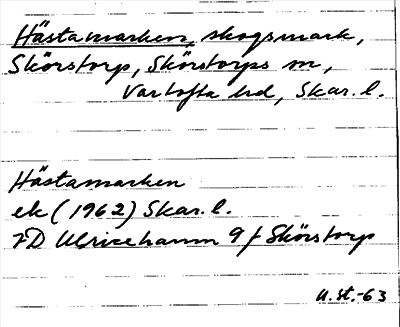 Hästamarken, skogsmark,
Skörstorp, Skörstorps sn,
Vartofta hd, Skar. l.
Hästamarken
ek (1962) Skar. l.
7D Ulricehamn 9f Skörstorp
U. st. -63